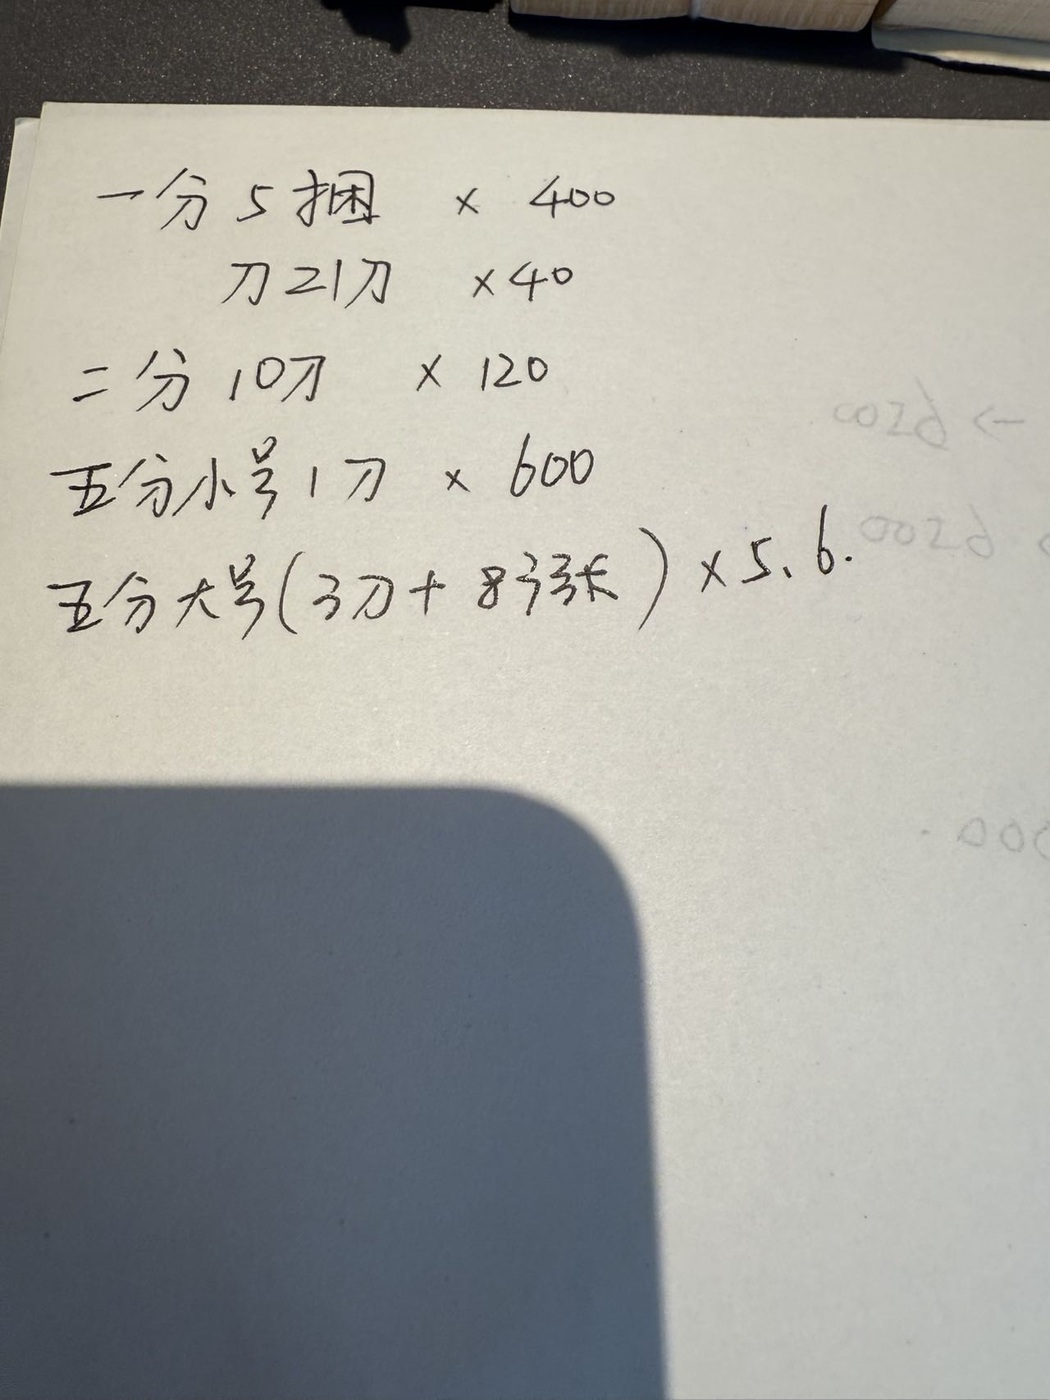 一分 5捆 × 400
刀 21刀 ×40
二分 10刀 × 120
五分小号 1刀 × 600
五分大号(3刀+ 83张) × 5.6.